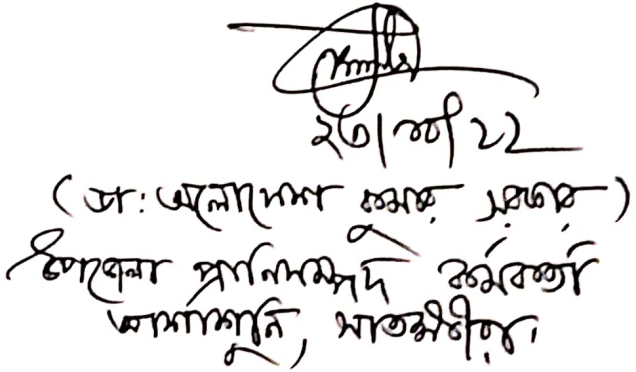 ২৩/০৮/২২
(ডা: অলোকেশ কুমার সরকার)
উপজেলা প্রানিসম্পদ কর্মকর্তা
আশাশুনি, সাতক্ষীরা।